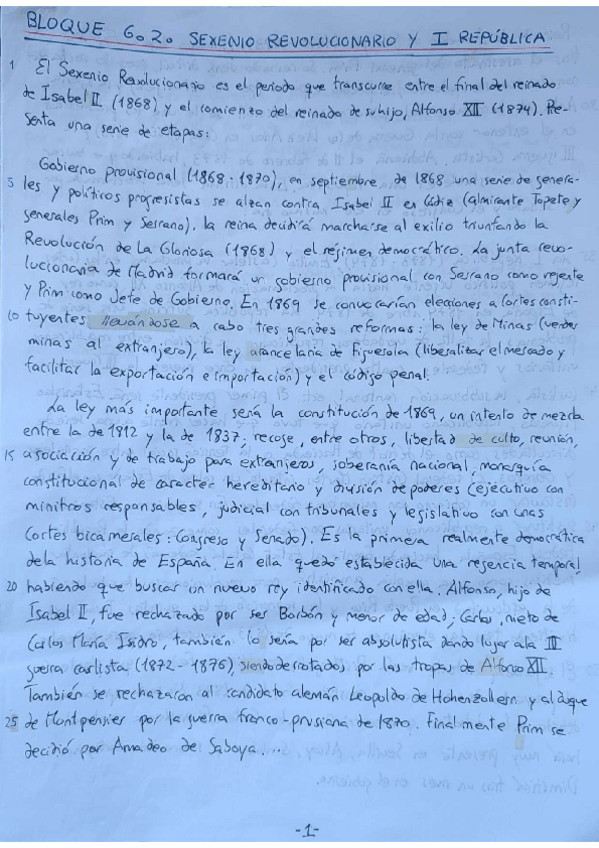 BLOQUE 6.2. SEXENIO REVOLUCIONARIO Y I REPÚBLICA
1 El Sexenio Revolucionario es el periodo que transcurre entre el final del reinado
de Isabel II (1868) y el comienzo del reinado de su hijo, Alfonso XII (1874). Pre-
senta una serie de etapas:
Gobierno provisional (1868-1870), en septiembre de 1868 una serie de genera-
5 les y políticos progresistas se alzan contra Isabel II en Cádiz (almirante Topete y
generales Prim y Serrano), la reina decidirá marcharse al exilio triunfando la
Revolución de La Gloriosa (1868) y el régimen democrático. La junta revo-
lucionaria de Madrid formará un gobierno provisional con Serrano como regente
y Prim como Jefe de Gobierno. En 1869 se convocarían elecciones a Cortes consti-
10 tuyentes llevándose a cabo tres grandes reformas: la ley de Minas (vender
minas al extranjero), la ley arancelaria de Figuerola (liberalizar el mercado y
facilitar la exportación e importación) y el código penal.
La ley más importante sería la constitución de 1869, un intento de mezcla
entre la de 1812 y la de 1837; recoge, entre otros, libertad de culto, reunión,
15 asociación y de trabajo para extranjeros, soberanía nacional, monarquía
constitucional de caracter hereditario y división de poderes (ejecutivo con
ministros responsables, judicial con tribunales y legislativo con unas
Cortes bicamerales: Congreso y Senado). Es la primera realmente democrática
de la historia de España. En ella quedó establecida una regencia temporal
20 habiendo que buscar un nuevo rey identificado con ella. Alfonso, hijo de
Isabel II, fue rechazado por ser Borbón y menor de edad; Carlos, nieto de
Carlos María Isidro, también lo sería por ser absolutista dando lugar a la III
guerra carlista (1872-1876), siendo derrotados por las tropas de Alfonso XII.
También se rechazaron al candidato alemán Leopoldo de Hohenzollern y al duque
25 de Montpensier por la guerra franco-prusiana de 1870. Finalmente Prim se
decidió por Amadeo de Saboya...
-1-